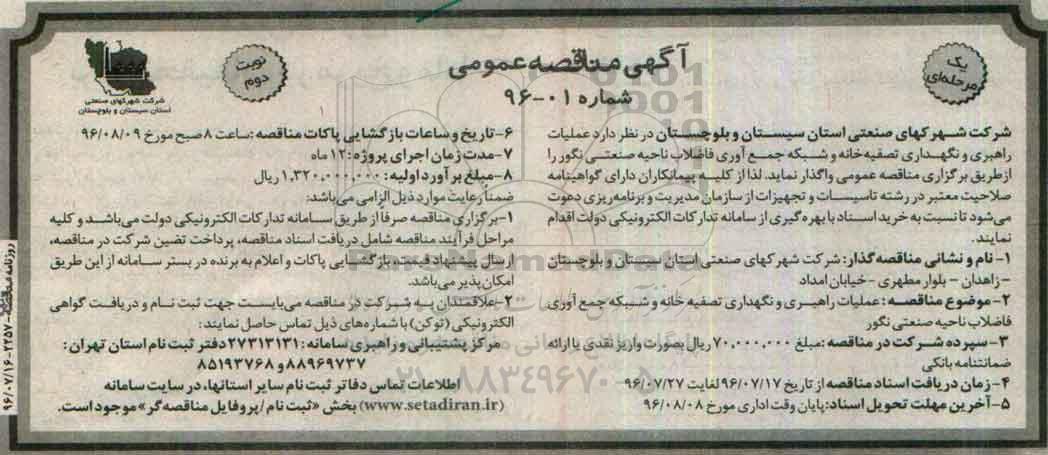 آگهی مناقصه عمومی
شماره ۰۱-۹۶
یک مرحله‌ای
نوبت دوم
شرکت شهرکهای صنعتی
استان سیستان و بلوچستان
شرکت شهرکهای صنعتی استان سیستان و بلوچستان در نظر دارد عملیات
راهبری و نگهداری تصفیه خانه و شبکه جمع آوری فاضلاب ناحیه صنعتی نگور را
ازطریق برگزاری مناقصه عمومی واگذار نماید. لذا از کلیه پیمانکاران دارای گواهینامه
صلاحیت معتبر در رشته تاسیسات و تجهیزات از سازمان مدیریت و برنامه ریزی دعوت
می‌شود تا نسبت به خرید اسناد با بهره گیری از سامانه تدارکات الکترونیکی دولت اقدام
نمایند.
۱- نام و نشانی مناقصه گذار: شرکت شهرکهای صنعتی استان سیستان و بلوچستان
- زاهدان - بلوار مطهری - خیابان امداد
۲- موضوع مناقصه: عملیات راهبری و نگهداری تصفیه خانه و شبکه جمع آوری
فاضلاب ناحیه صنعتی نگور
۳- سپرده شرکت در مناقصه: مبلغ ۷۰,۰۰۰,۰۰۰ ریال بصورت واریز نقدی یا ارائه
ضمانتنامه بانکی
۴- زمان دریافت اسناد مناقصه از تاریخ ۹۶/۰۷/۱۷ لغایت ۹۶/۰۷/۲۷
۵- آخرین مهلت تحویل اسناد: پایان وقت اداری مورخ ۹۶/۰۸/۰۸
۶- تاریخ و ساعات بازگشایی پاکات مناقصه: ساعت ۸ صبح مورخ ۹۶/۰۸/۰۹
۷- مدت زمان اجرای پروژه: ۱۲ ماه
۸- مبلغ برآورد اولیه: ۱,۳۲۰,۰۰۰,۰۰۰ ریال
ضمناً رعایت موارد ذیل الزامی می‌باشد:
۱- برگزاری مناقصه صرفاً از طریق سامانه تدارکات الکترونیکی دولت می‌باشد و کلیه
مراحل فرآیند مناقصه شامل دریافت اسناد مناقصه، پرداخت تضمین شرکت در مناقصه،
ارسال پیشنهاد قیمت، بازگشایی پاکات و اعلام به برنده در بستر سامانه از این طریق
امکان پذیر می‌باشد.
۲- علاقمندان به شرکت در مناقصه می‌بایست جهت ثبت نام و دریافت گواهی
الکترونیکی (توکن) با شماره‌های ذیل تماس حاصل نمایند:
مرکز پشتیبانی و راهبری سامانه: ۲۷۳۱۳۱۳۱ دفتر ثبت نام استان تهران:
۸۸۹۶۹۷۳۷ و ۸۵۱۹۳۷۶۸
اطلاعات تماس دفاتر ثبت نام سایر استانها، در سایت سامانه
(www.setadiran.ir) بخش «ثبت نام / پروفایل مناقصه گر» موجود است.
روزنامه مناقصه - ۲۲۵۷ - ۹۶/۰۷/۱۶
ParsNamadData
۰۲۱-۸۸۳۴۹۶۷۰-۵